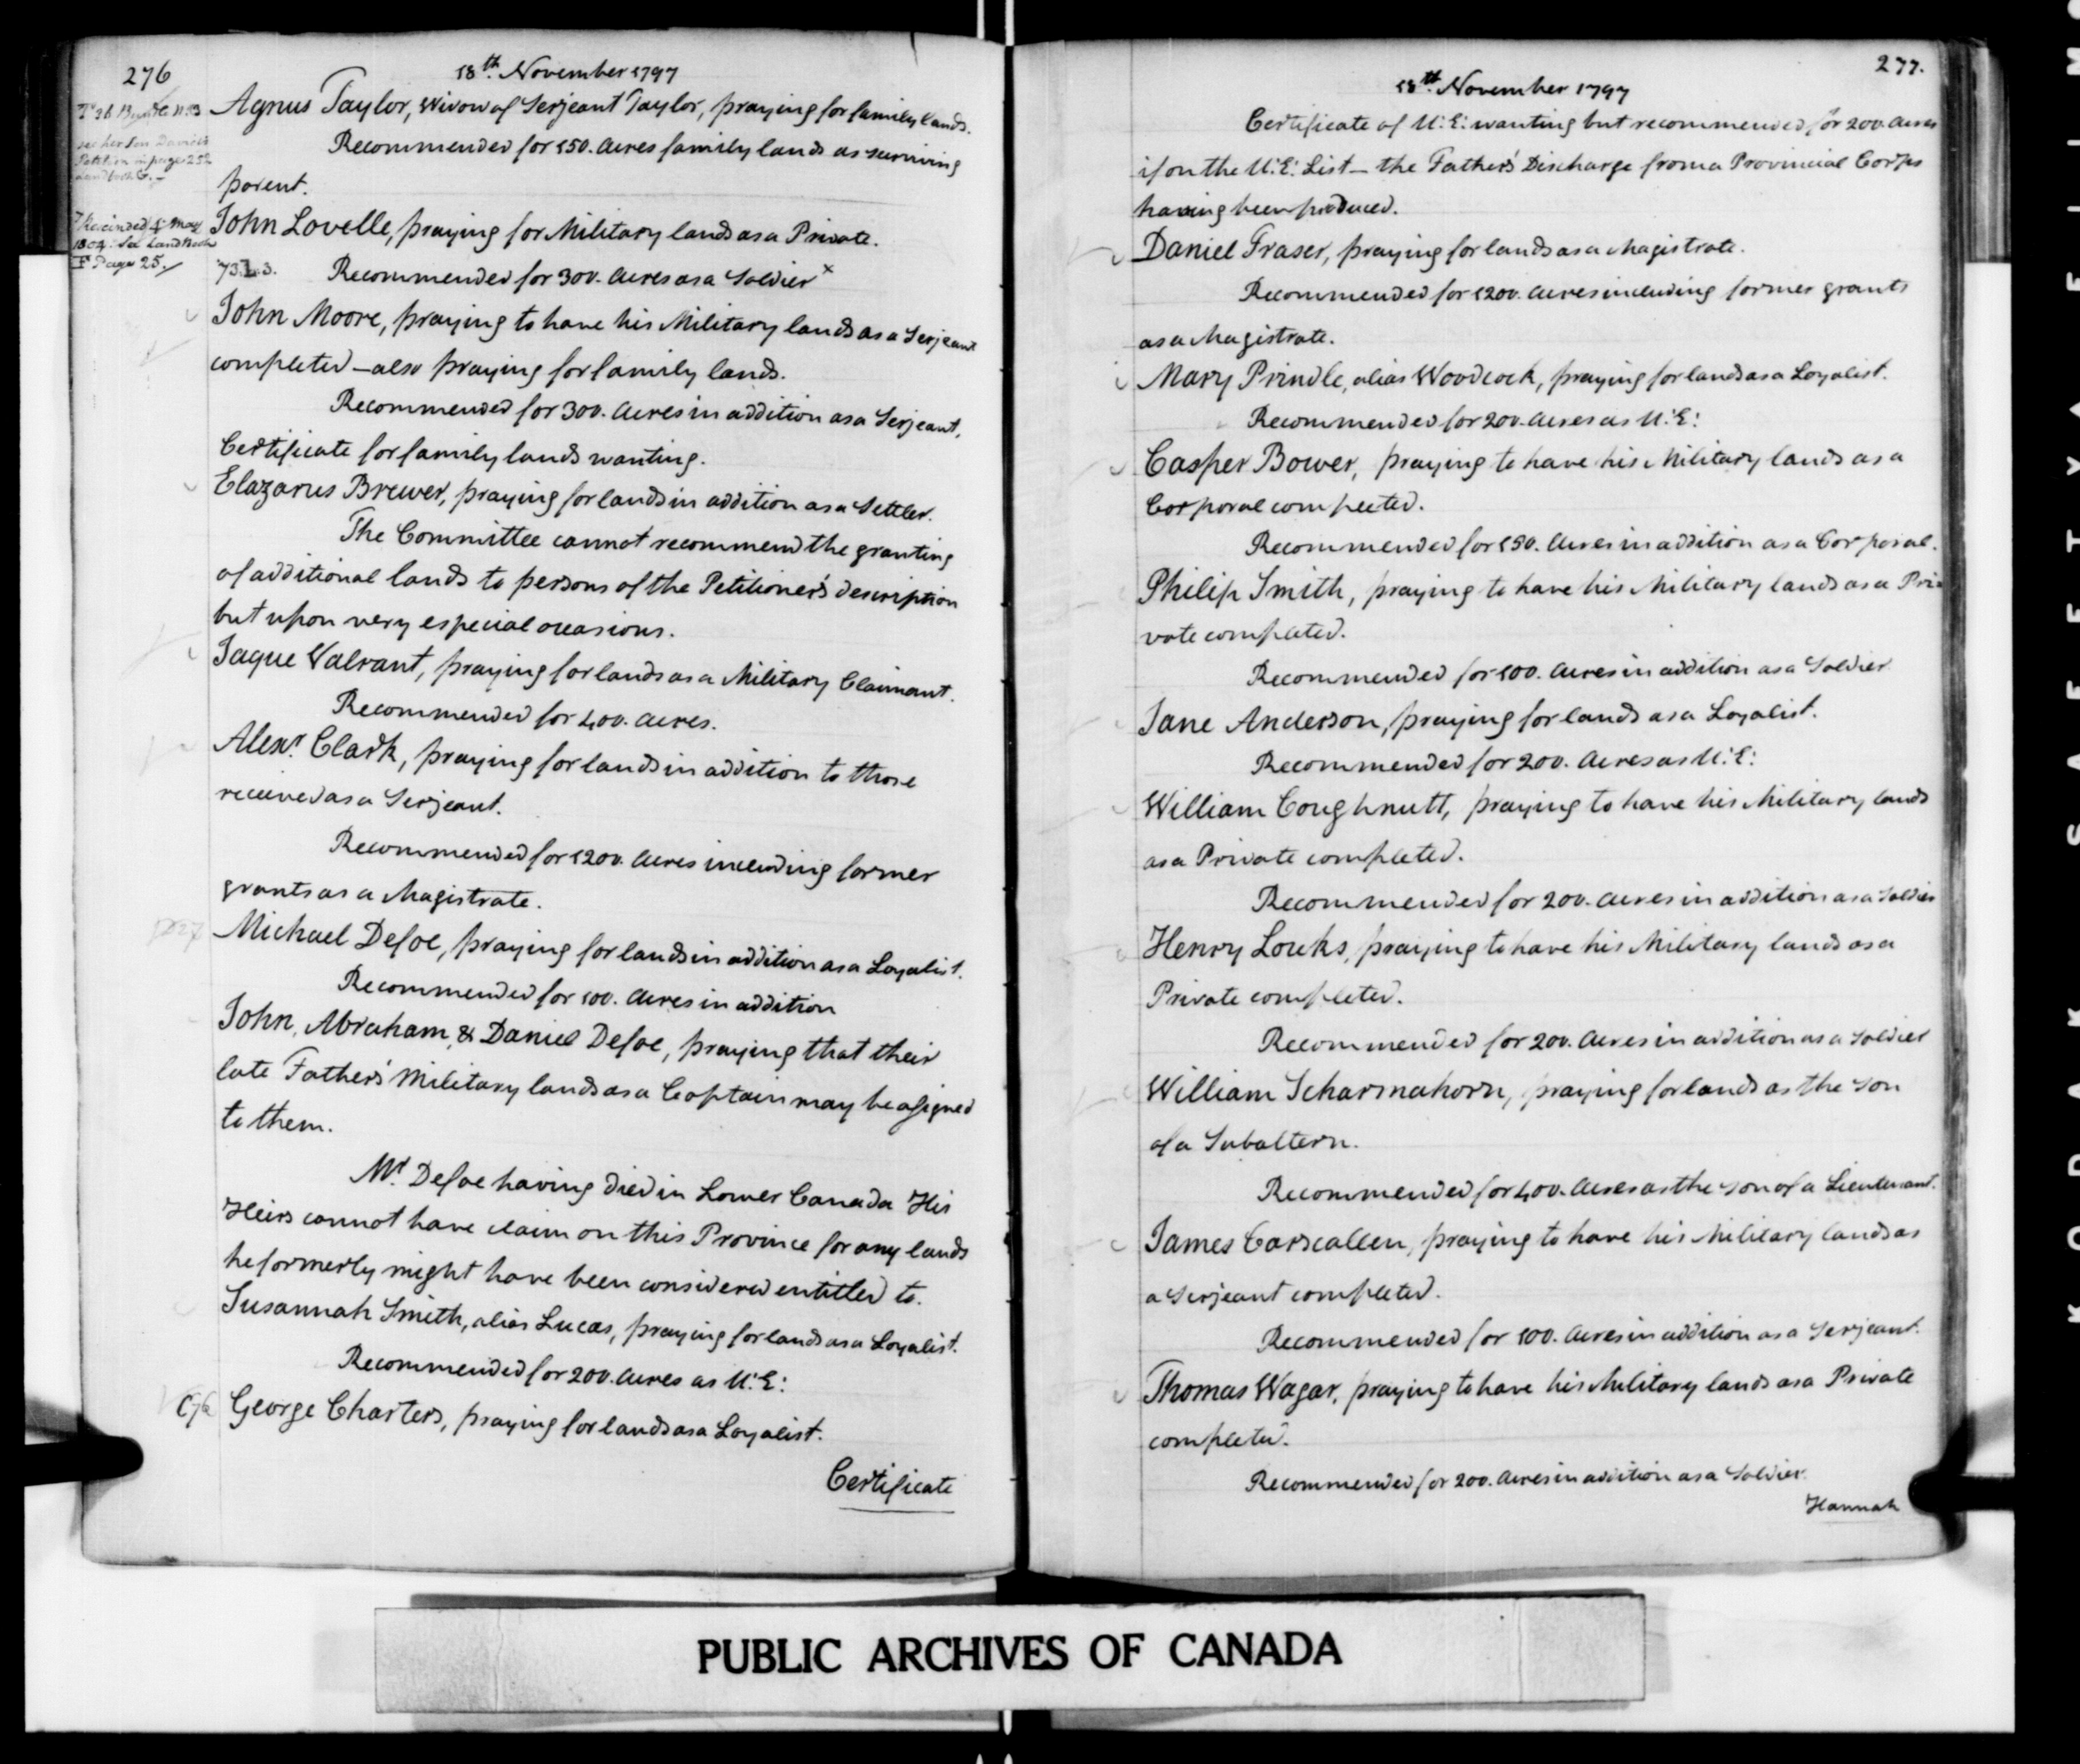 276
18th. November 1797
T 26 Bundle N. 3
see her Son David's
Petition in page 252
Land book C.
Agnus Taylor, Widow of Serjeant Taylor, praying for family lands.
Recommended for 150. Acres family lands as surviving
parent.
Rescinded 5 May
1804. See Land Book
F Page 25.
John Lovelle, praying for Military lands as a Private.
73. L. 3. Recommended for 300. Acres as a Soldier x
John Moore, praying to have his Military lands as a Serjeant
completed – also praying for family lands.
Recommended for 300. Acres in addition as a Serjeant,
Certificate for family lands wanting.
Elazarus Brewer, praying for lands in addition as a Settler.
The Committee cannot recommend the granting
of additional lands to persons of the Petitioner's description
but upon very especial occasions.
Jaque Valrant, praying for lands as a Military Claimant.
Recommended for 400. Acres.
Alexr. Clark, praying for lands in addition to those
received as a Serjeant.
Recommended for 1200. Acres including former
grants as a Magistrate.
Michael Defoe, praying for lands in addition as a Loyalist.
Recommended for 100. Acres in addition
John, Abraham, & Daniel Defoe, praying that their
late Father's Military lands as a Captain may be assigned
to them.
Mr. Defoe having died in Lower Canada His
Heirs cannot have claim on this Province for any lands
he formerly might have been considered entitled to.
Susannah Smith, alias Lucas, praying for lands as a Loyalist.
Recommended for 200. Acres as U.E:
George Charters, praying for lands as a Loyalist.
Certificate
277.
18th. November 1797
Certificate of U.E: wanting but recommended for 200. Acres
if on the U.E: List – the Father's Discharge from a Provincial Corps
having been produced.
Daniel Fraser, praying for lands as a Magistrate.
Recommended for 1200. Acres including former grants
as a Magistrate.
Mary Prindle, alias Woodcock, praying for lands as a Loyalist.
Recommended for 200. Acres as U.E:
Casper Bower, praying to have his Military lands as a
Corporal completed.
Recommended for 150. Acres in addition as a Corporal.
Philip Smith, praying to have his Military lands as a Pri=
vate completed.
Recommended for 100. Acres in addition as a Soldier
Jane Anderson, praying for lands as a Loyalist.
Recommended for 200. Acres as U.E:
William Coughnutt, praying to have his Military lands
as a Private completed.
Recommended for 200. Acres in addition as a Soldier
Henry Louks, praying to have his Military lands as a
Private completed.
Recommended for 200. Acres in addition as a Soldier
William Scharmahorn, praying for lands as the Son
of a Subaltern.
Recommended for 400. Acres as the Son of a Lieutenant.
James Carscallen, praying to have his Military lands as
a Serjeant completed.
Recommended for 100. Acres in addition as a Serjeant.
Thomas Wagar, praying to have his Military lands as a Private
completed.
Recommended for 200. Acres in addition as a Soldier.
Hannah
PUBLIC ARCHIVES OF CANADA